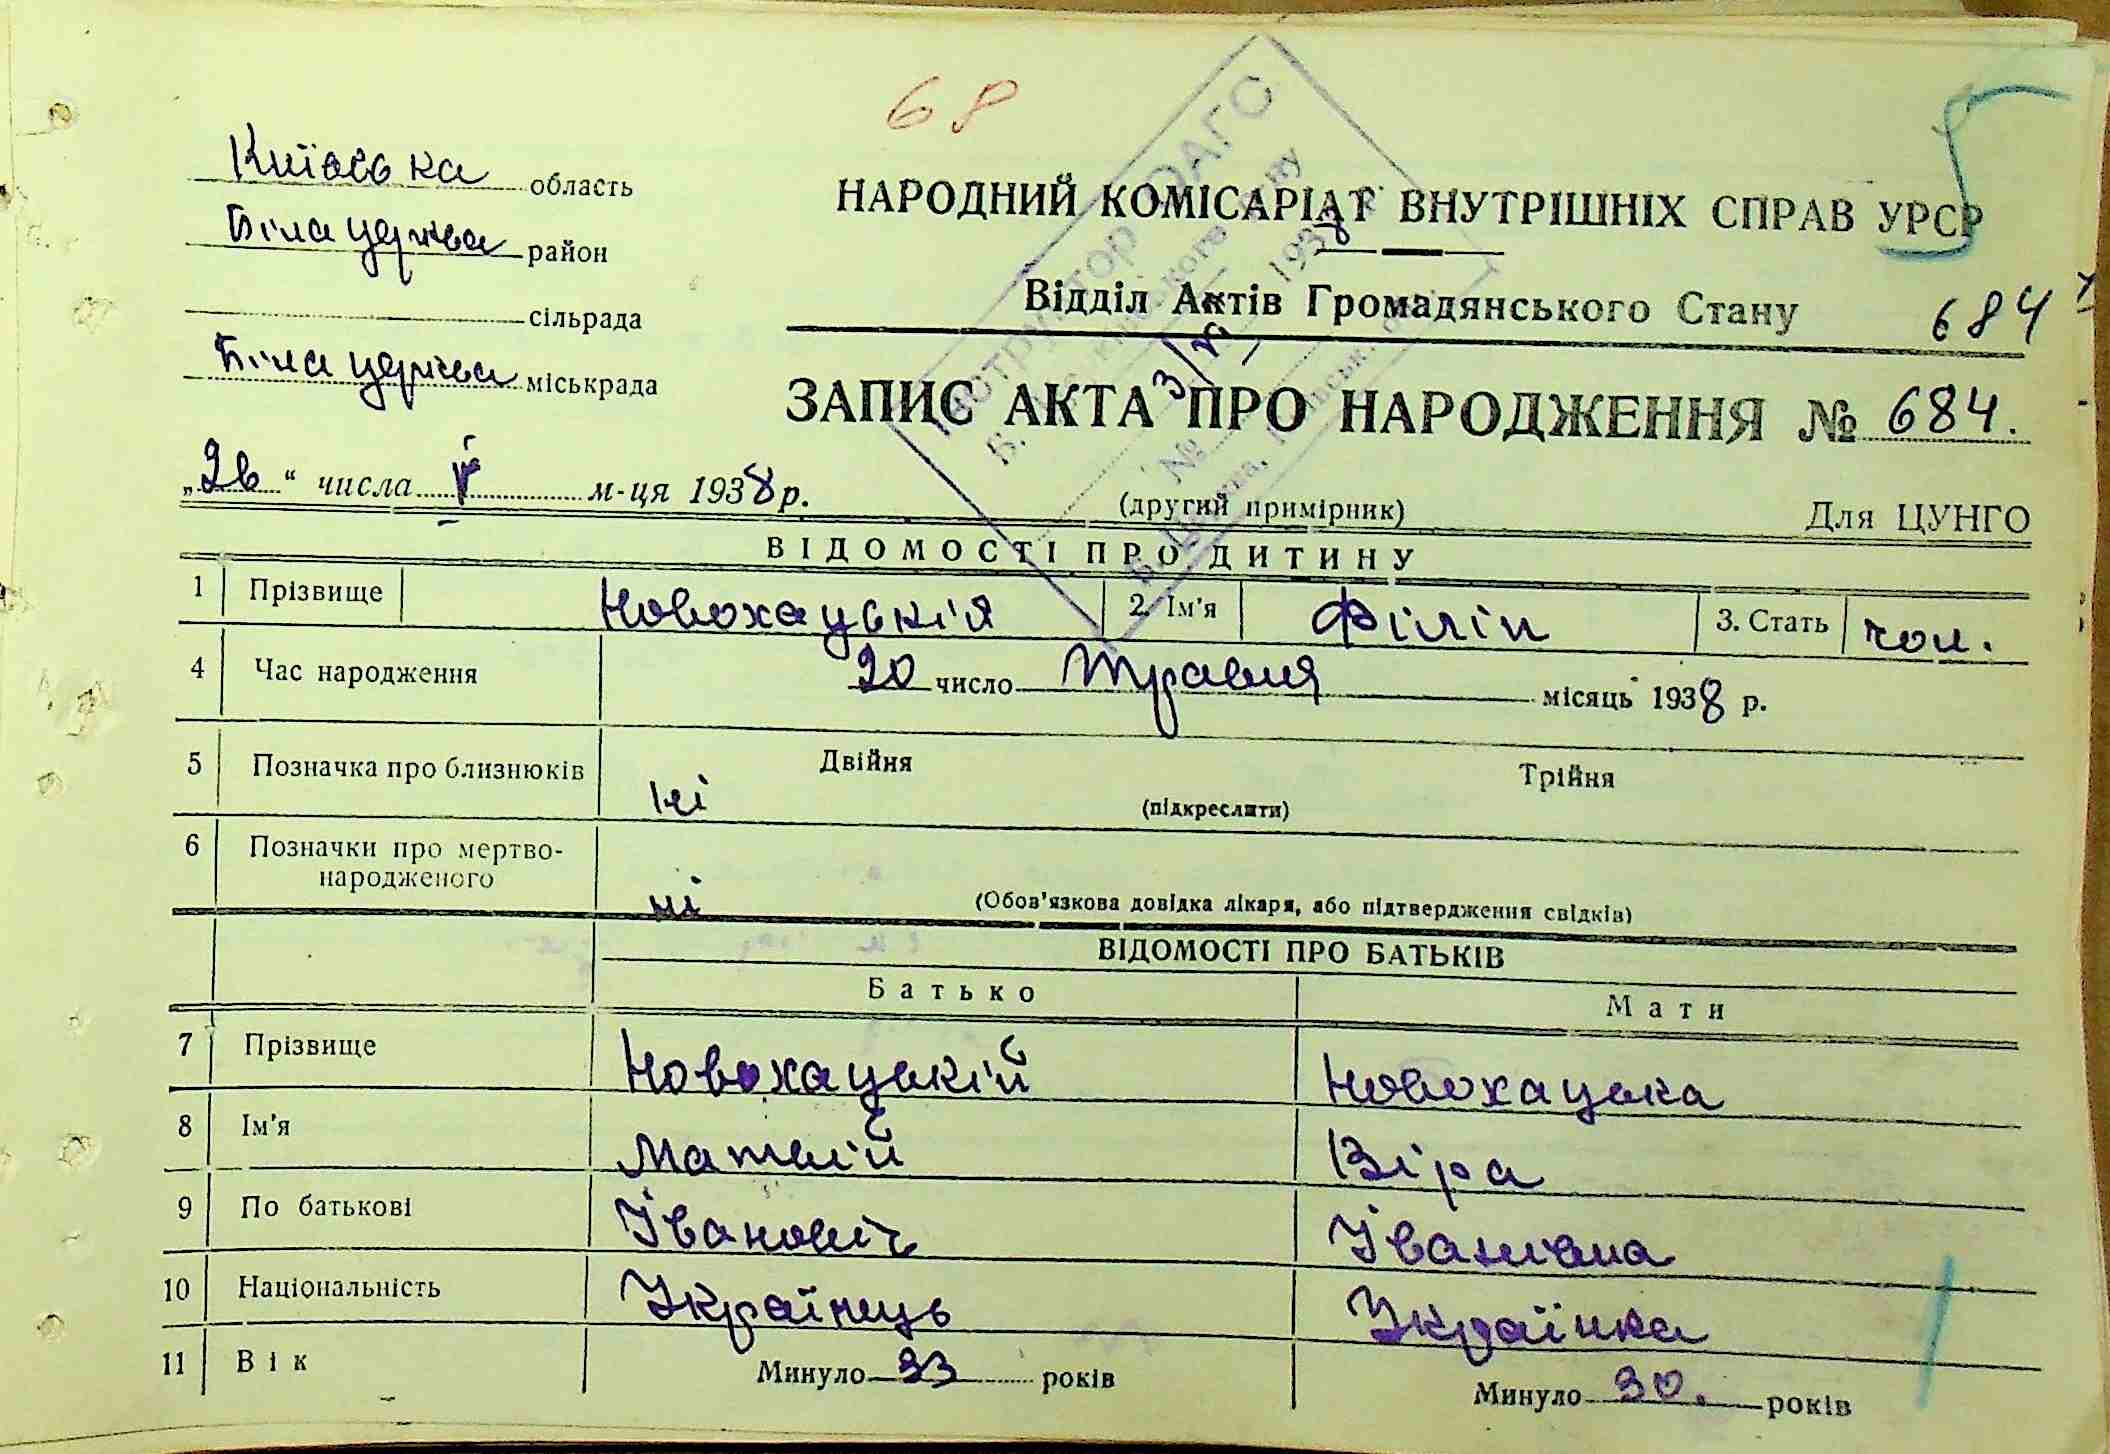 68
Київська область
Біла церква район
сільрада
Біла церква міськрада
НАРОДНИЙ КОМІСАРІАТ ВНУТРІШНІХ СПРАВ УРСР
Відділ Актів Громадянського Стану
684
ЗАПИС АКТА ПРО НАРОДЖЕННЯ № 684.
„26“ числа V м-ця 1938 р.
(другий примірник)
Для ЦУНГО
ВІДОМОСТІ ПРО ДИТИНУ
1 Прізвище Новохацькій 2. Ім'я Філіп 3. Стать чол.
4 Час народження 20 число Травня місяць 1938 р.
5 Позначка про близнюків ні Двійня Трійня
(підкреслити)
6 Позначки про мертво-
народженого ні (Обов'язкова довідка лікаря, або підтвердження свідків)
ВІДОМОСТІ ПРО БАТЬКІВ
Батько Мати
7 Прізвище Новохацькій Новохацька
8 Ім'я Матвій Віра
9 По батькові Іванович Іванівна
10 Національність Українець Українка
11 Вік Минуло 33 років Минуло 30. років